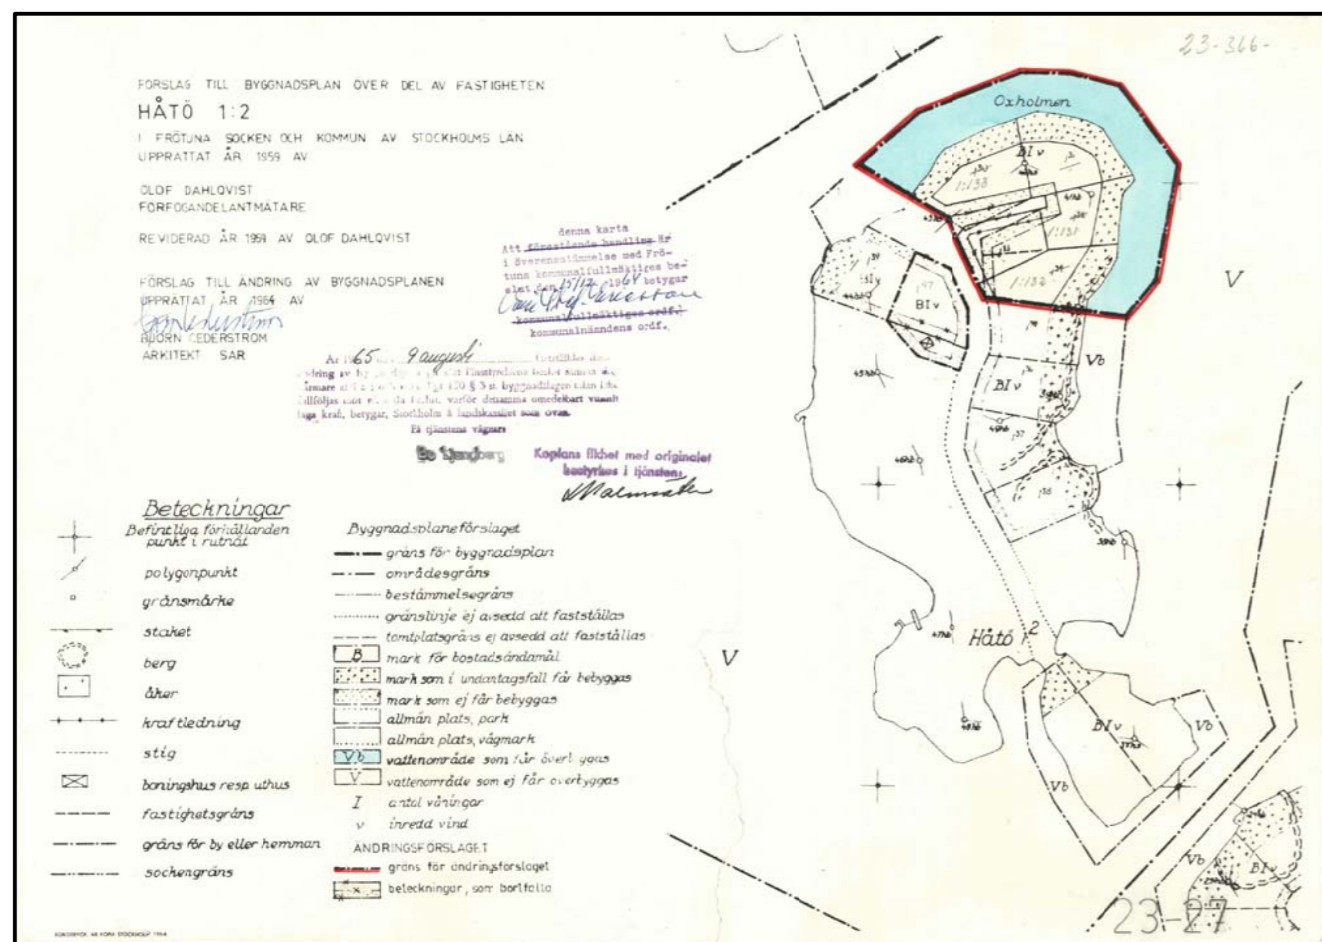 23-366-
FÖRSLAG TILL BYGGNADSPLAN ÖVER DEL AV FASTIGHETEN
HÅTÖ 1:2
I FRÖTUNA SOCKEN OCH KOMMUN AV STOCKHOLMS LÄN
UPPRÄTTAT ÅR 1959 AV
OLOF DAHLQVIST
FÖRFOGANDELANTMÄTARE
REVIDERAD ÅR 1959 AV OLOF DAHLQVIST
FÖRSLAG TILL ÄNDRING AV BYGGNADSPLANEN
UPPRÄTTAT ÅR 1964 AV
BJÖRN CEDERSTRÖM
ARKITEKT SAR
denna karta
Att förestående handling är
i överensstämmelse med Frö-
tuna kommunalfullmäktiges be-
slut den 15/12 1964 betygar
kommunalfullmäktiges ordf.
kommunalnämndens ordf.
År 1965 9 augusti
laga kraft, betygar, Stockholm å landskansliet som ovan.
På tjänstens vägnar
Kopians likhet med originalet
bestyrkes i tjänsten
Beteckningar
Befintliga förhållanden
punkt i rutnät
polygonpunkt
gränsmärke
staket
berg
åker
kraftledning
stig
boningshus resp. uthus
fastighetsgräns
gräns för by eller hemman
sockengräns
Byggnadsplaneförslaget
gräns för byggnadsplan
områdesgräns
bestämmelsegräns
gränslinje ej avsedd att fastställas
tomtplatsgräns ej avsedd att fastställas
B mark för bostadsändamål
mark som i undantagsfall får bebyggas
mark som ej får bebyggas
allmän plats, park
allmän plats, vägmark
Vb vattenområde som får överbyggas
V vattenområde som ej får överbyggas
I antal våningar
v inredd vind
ÄNDRINGSFÖRSLAGET
gräns för ändringsförslaget
beteckningar, som bortfalla
Oxholmen
BIv
1:133
1:131
1:132
V
BIv
BIv
Vb
BIv
45hb
46hb
38hb
47hb
Håtö 1:2
V
BIv
Vb
Vb
Vb
BIv
23-27